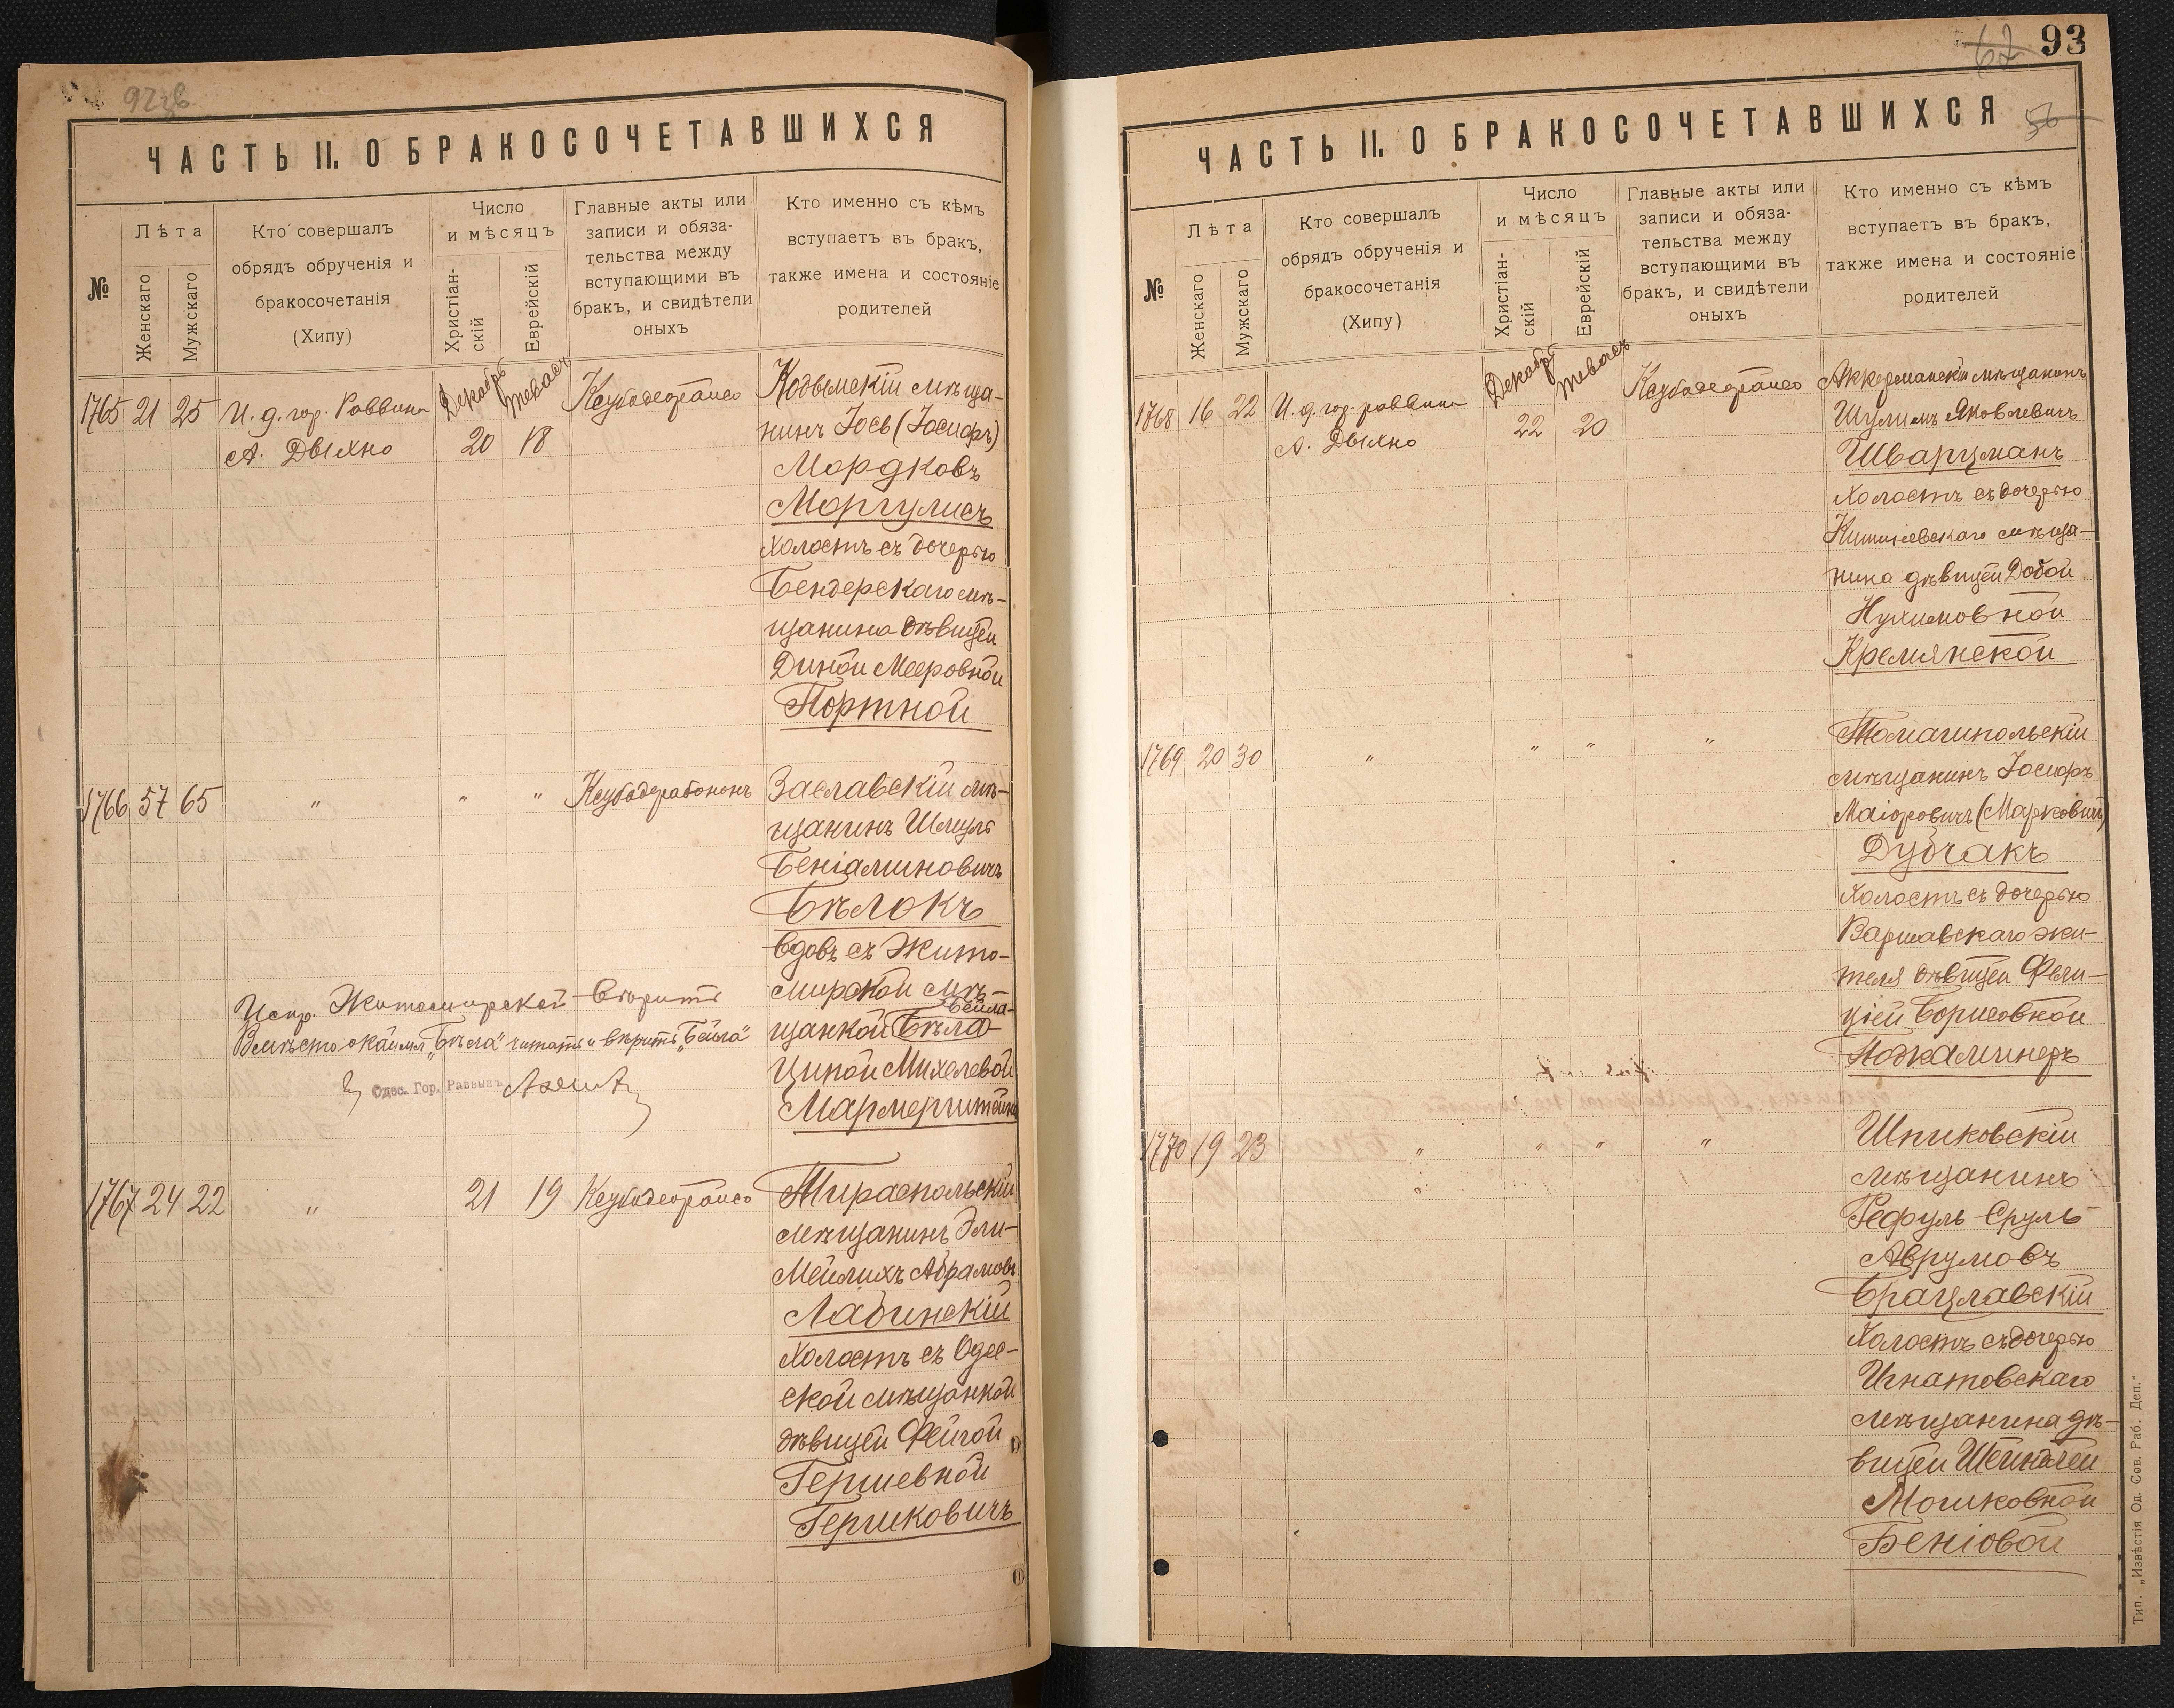 92зв
ЧАСТЬ II. О БРАКОСОЧЕТАВШИХСЯ
№
Лѣта
Женскаго
Мужскаго
Кто совершалъ
обрядъ обрученія и
бракосочетанія
(Хипу)
Число
и мѣсяцъ
Христіан-
скій
Еврейскій
Главные акты или
записи и обяза-
тельства между
вступающими въ
бракъ, и свидѣтели
оныхъ
Кто именно съ кѣмъ
вступаетъ въ бракъ,
также имена и состояніе
родителей
1765 21 25 И. д. гор. Раввина
А. Дыхно
Декабрь Теваcъ
20 18
Ксубодеорайсо
Кодымскій мѣща-
нинъ Іось (Іосифъ)
Мордковъ
Моргулисъ
холостъ съ дочерью
Бендерскаго мѣ-
щанина дѣвицей
Диной Мееровной
Портной
1766 57 65 " " " Ксубодерабононъ
Заславскій мѣ-
щанинъ Шмуль
Беніаминовичъ
Бѣлокъ
вдовъ съ Жито-
мирской мѣ-
Бейла-
щанкой Бѣла-
Ципой Михелевой
Мармерштейнъ
Испр. Житомирской вѣрить
Вмѣсто окаймл „Бѣла" читать и вѣрить „Бейла"
Одес. Гор. Раввинъ
1767 24 22 " 21 19 Ксубодеорайсо
Тираспольскій
мѣщанинъ Эли-
Мейлихъ Абрамовъ
Лабинскій
холостъ съ Одес-
ской мѣщанкой
дѣвицей Фейгой
Гершевной
Гершковичъ
67 93
56
ЧАСТЬ II. О БРАКОСОЧЕТАВШИХСЯ
№
Лѣта
Женскаго
Мужскаго
Кто совершалъ
обрядъ обрученія и
бракосочетанія
(Хипу)
Число
и мѣсяцъ
Христіан-
скій
Еврейскій
Главные акты или
записи и обяза-
тельства между
вступающими въ
бракъ, и свидѣтели
оныхъ
Кто именно съ кѣмъ
вступаетъ въ бракъ,
также имена и состояніе
родителей
1768 16 22 И. д. гор. раввина
А. Дыхно
Декабрь Тевасъ
22 20
Ксубодеорайсо
Аккерманскій мѣщанинъ
Шулимъ Яковлевичъ
Шварцманъ
холостъ съ дочерью
Кишиневскаго мѣща-
нина дѣвицей Добой
Нухимовной
Кремянской
1769 20 30 " " " "
Томашпольскій
мѣщанинъ Іосифъ
Маіоровичъ (Марковичъ)
Дубчакъ
холостъ съ дочерью
Варшавскаго жи-
теля дѣвицей Фели-
ціей Борисовной
Подкаминеръ
1770 19 23 " " " "
Шпиковскій
мѣщанинъ
Рефуль Сруль
Аврумовъ
Брацлавскій
холостъ съ дочерью
Игнатовскаго
мѣщанина дѣ-
вицей Шейндлей
Мошковной
Беніовой
Тип. „Извѣстія Од. Сов. Раб. Деп."